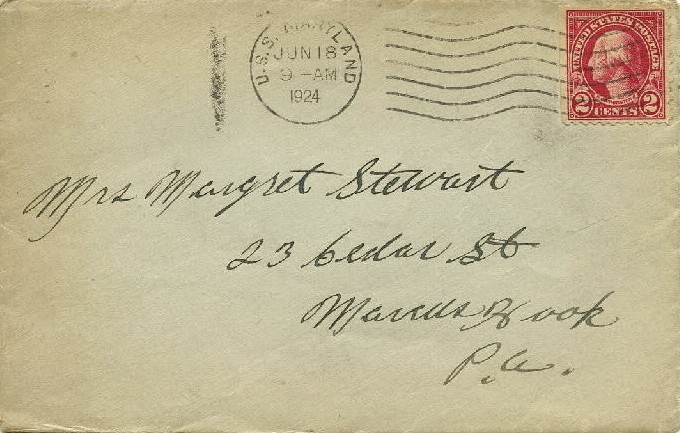 U.S.S. MARYLAND
JUN 18
9 -AM
1924
UNITED STATES POSTAGE
2 CENTS 2
Mrs Margret Stewart
23 Cedar St
Marcus Hook
P.a.